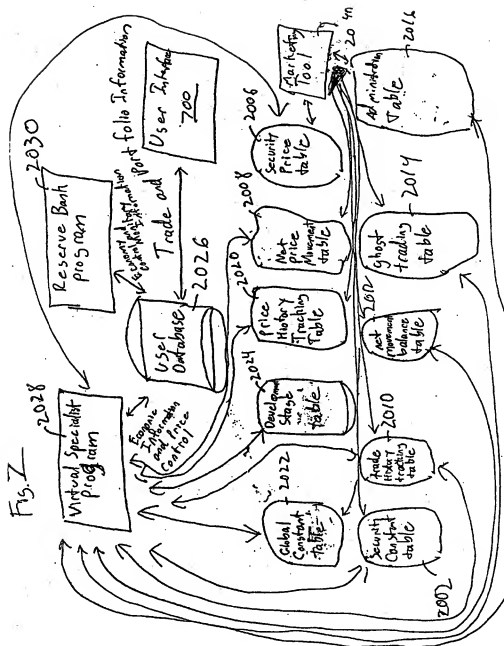 Fig. 7
Virtual Specialist
Program
2028
Reserve Bank
program
2030
Economy and
Information
Economic
Information
and Price
Control
User
Database
2026
Trade and
Portfolio Information
User Interface
700
Global
Constant
Table
2022
Development
Stage
Table
2024
Price
History
Tracking
Table
2020
Net
Price
Movement
table
2008
Security
Price
table
2006
Marketing
Tool
Security
Constant
table
2002
trade
History
tracking
table
2010
net
movement
balance
table
2012
ghost
trading
table
2014
Administration
Table
2016